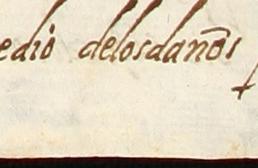 edio delosdaños